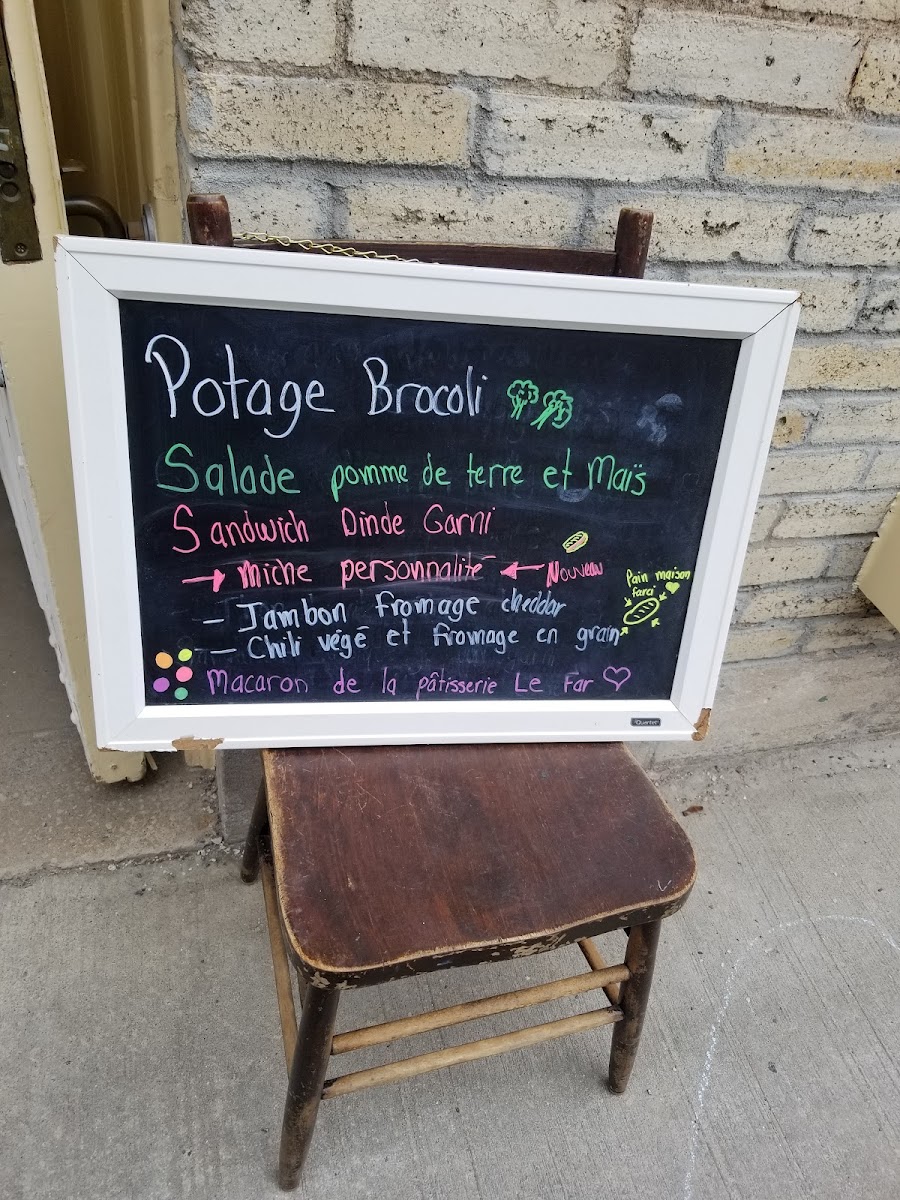 Potage Brocoli
Salade pomme de terre et Maïs
Sandwich Dinde Garni
→ miche personnalité ← Nouveau
Pain maison
farci
- Jambon fromage cheddar
- Chili végé et fromage en grain
Macaron de la pâtisserie Le Far ♡
Quartet